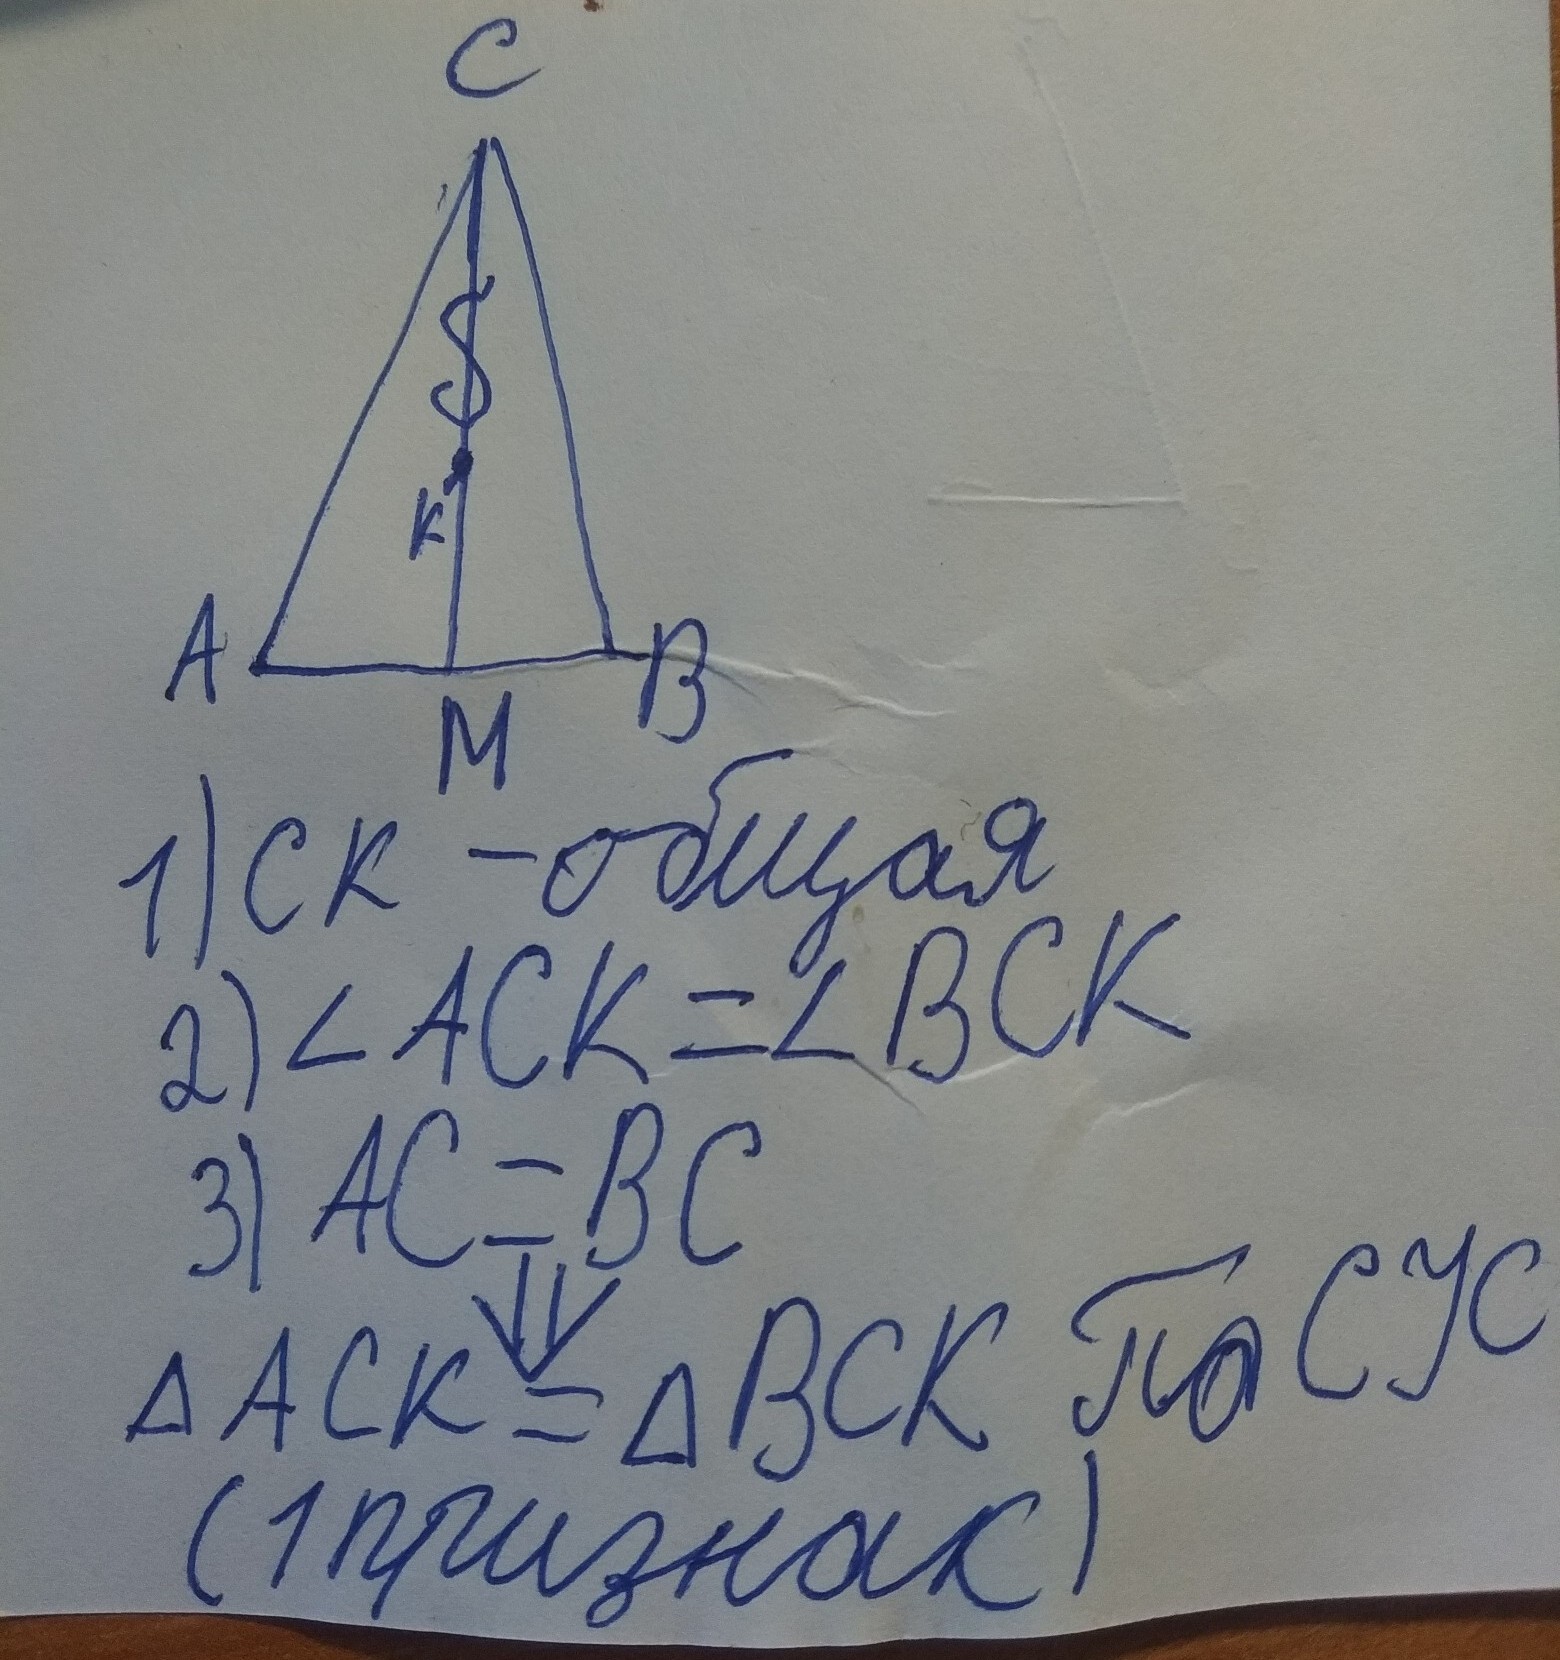 C
K
A
B
M
1) CK – общая
2) ∠ACK = ∠BCK
3) AC = BC
⇓
△ACK = △BCK по СУС
(1 признак)